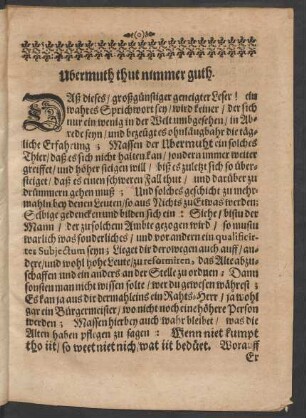 (o)
Ubermuth thut nimmer guth.
Daß dieses / großgünstiger geneigter Leser! ein
wahres Sprichwort sey / wird keiner / der sich
nur ein wenig in der Welt umbgesehen / in Ab-
rede seyn / und bezeuget es ohnlängbahr die täg-
liche Erfahrung; Massen der Ubermuht ein solches
Thier / daß es sich nicht halten kan / sondern immer weiter
greiffet / und höher steigen will / biß es zuletzt sich so über-
steiget / daß es einen schweren Fall thut / und darüber zu
drümmern gehen muß; Und solches geschicht zu mehr-
mahln bey denen Leuten / so aus Nichts zu Etwas werden:
Selbige gedencken und bilden sich ein: Siehe / bistu der
Mann / der zu solchem Ambte gezogen wird / so mustu
warlich was sonderliches / und vor andern ein qualificir-
tes Subjectum seyn; Lieget dir derowegen auch auff / an-
dere / und wohl hohe Leute / zu reformiren, das Alte abzu-
schaffen und ein anders an der Stelle zu ordnen: Dann
sonsten man nicht wissen solte / wer du gewesen währest;
Es kan ja aus dir dermahleins ein Rahts-Herr / ja wohl
gar ein Bürgermeister / wo nicht noch eine höhere Person
werden; Massen hierbey auch wahr bleibet / was die
Alten haben pflegen zu sagen: Wenn niet kumpt
tho iit / so weet niet nich / wat iit bedüet. Worauff
Er